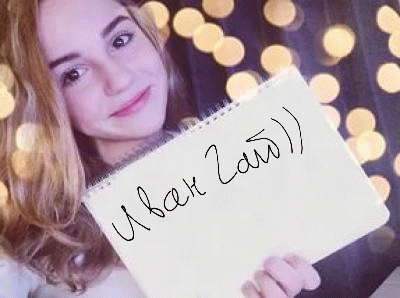 Иван Гай))